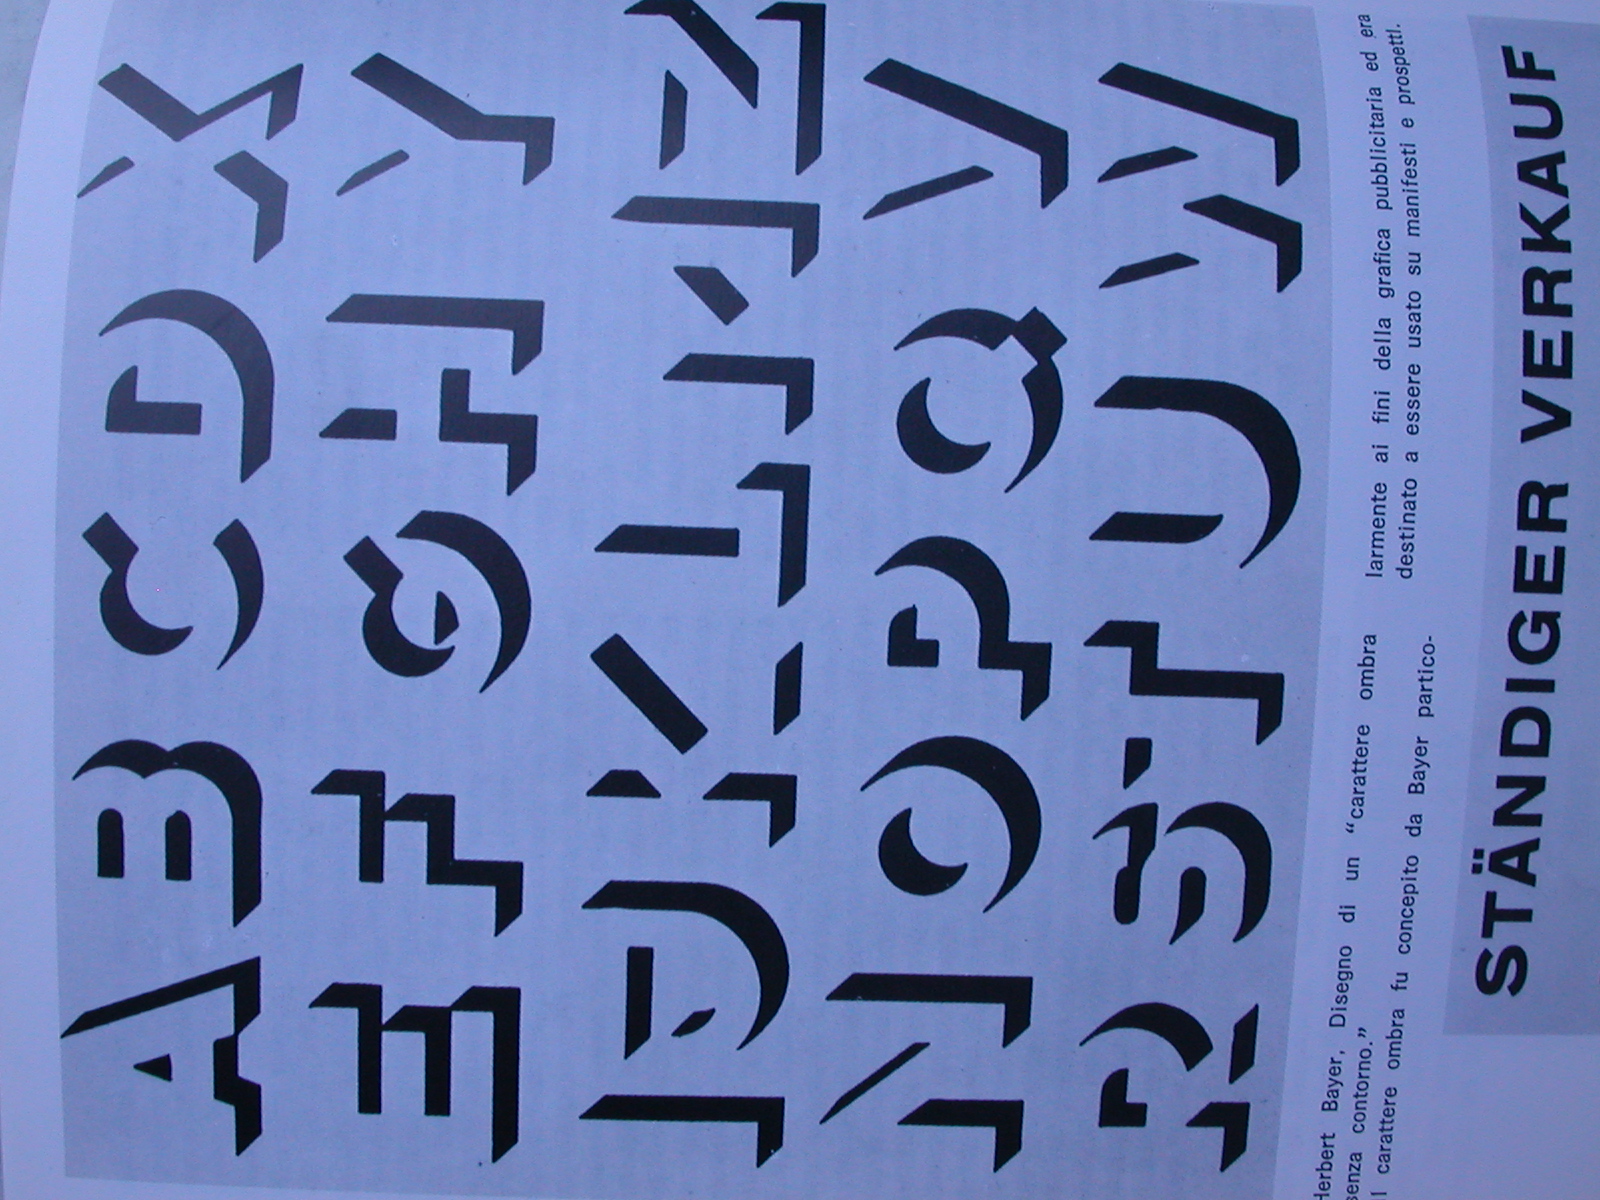 A B C D X
E F G H Y
I J K L M Z
N O P Q V
R S T U W
Herbert Bayer, Disegno di un “carattere ombra
senza contorno.”
Il carattere ombra fu concepito da Bayer partico-
larmente ai fini della grafica pubblicitaria ed era
destinato a essere usato su manifesti e prospetti.
STÄNDIGER VERKAUF